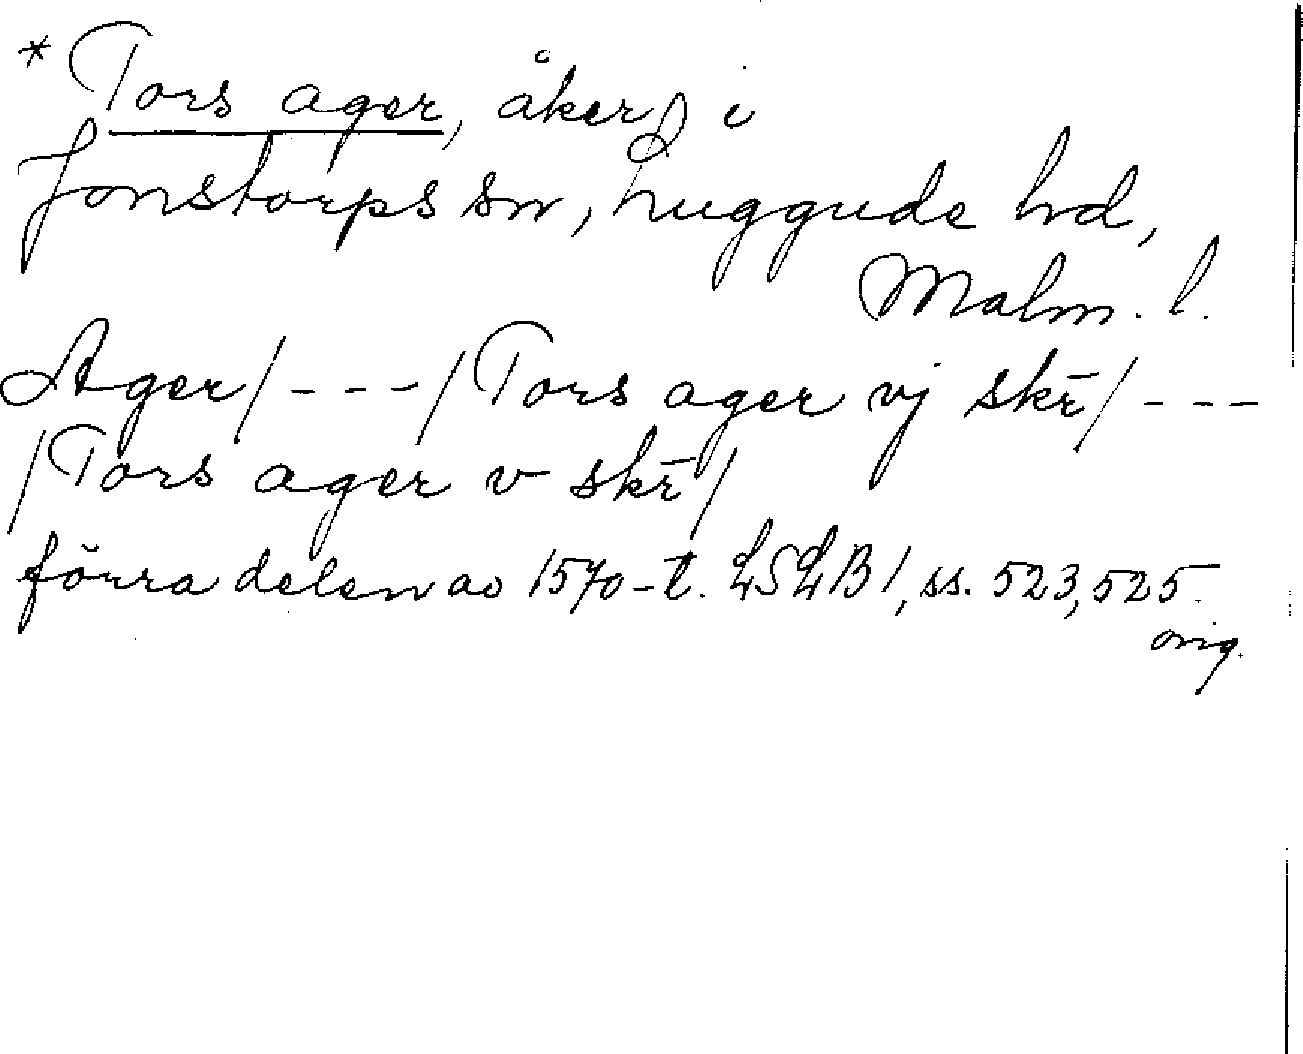 * Tors ager, åker, i
Jonstorps sn, Luggude hd,
Malm. l.
Ager/---/Tors ager vj skr̄/---
/Tors ager v skr̄/
förra delen av 1570-t. LSLB1, ss. 523, 525.
orig.